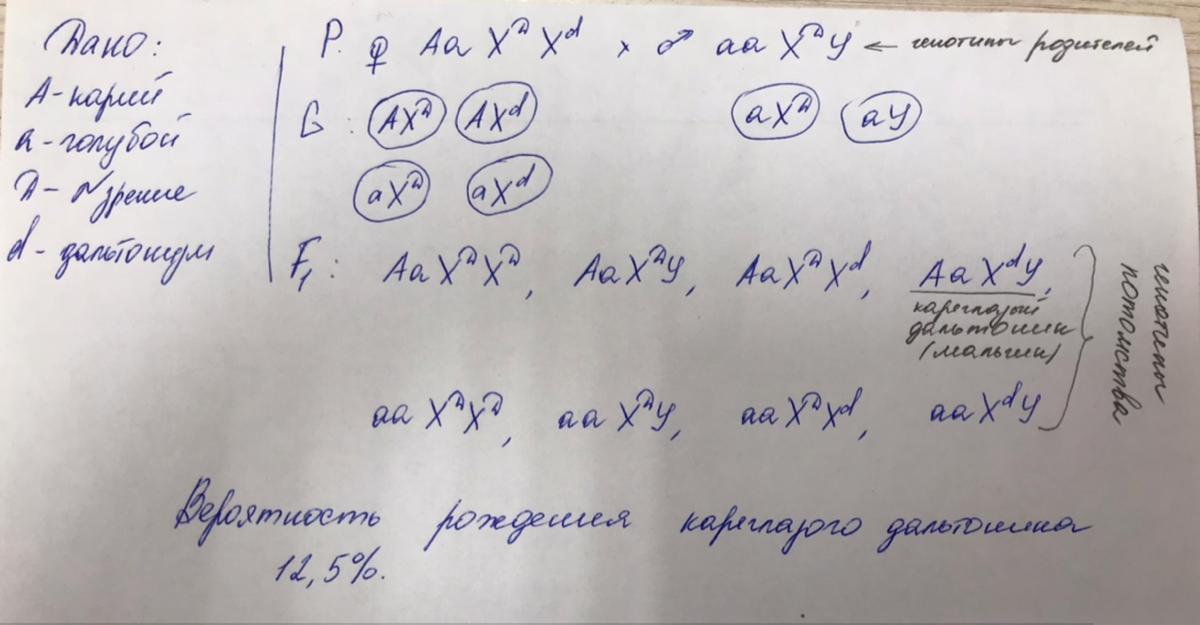 Дано:
А - карий
а - голубой
D - N зрение
d - дальтонизм
P. ♀ Aa Xᴰ Xᵈ × ♂ aa Xᴰ У ← генотипы родителей
G : AXᴰ AXᵈ aXᴰ aУ
aXᴰ aXᵈ
F₁ : Aa XᴰXᴰ, Aa XᴰУ, Aa XᴰXᵈ, Aa XᵈУ,
кареглазый
дальтоник
(мальчик)
aa XᴰXᴰ, aa XᴰУ, aa XᴰXᵈ, aa XᵈУ
генотипы
потомства
Вероятность рождения кареглазого дальтоника
12,5%.